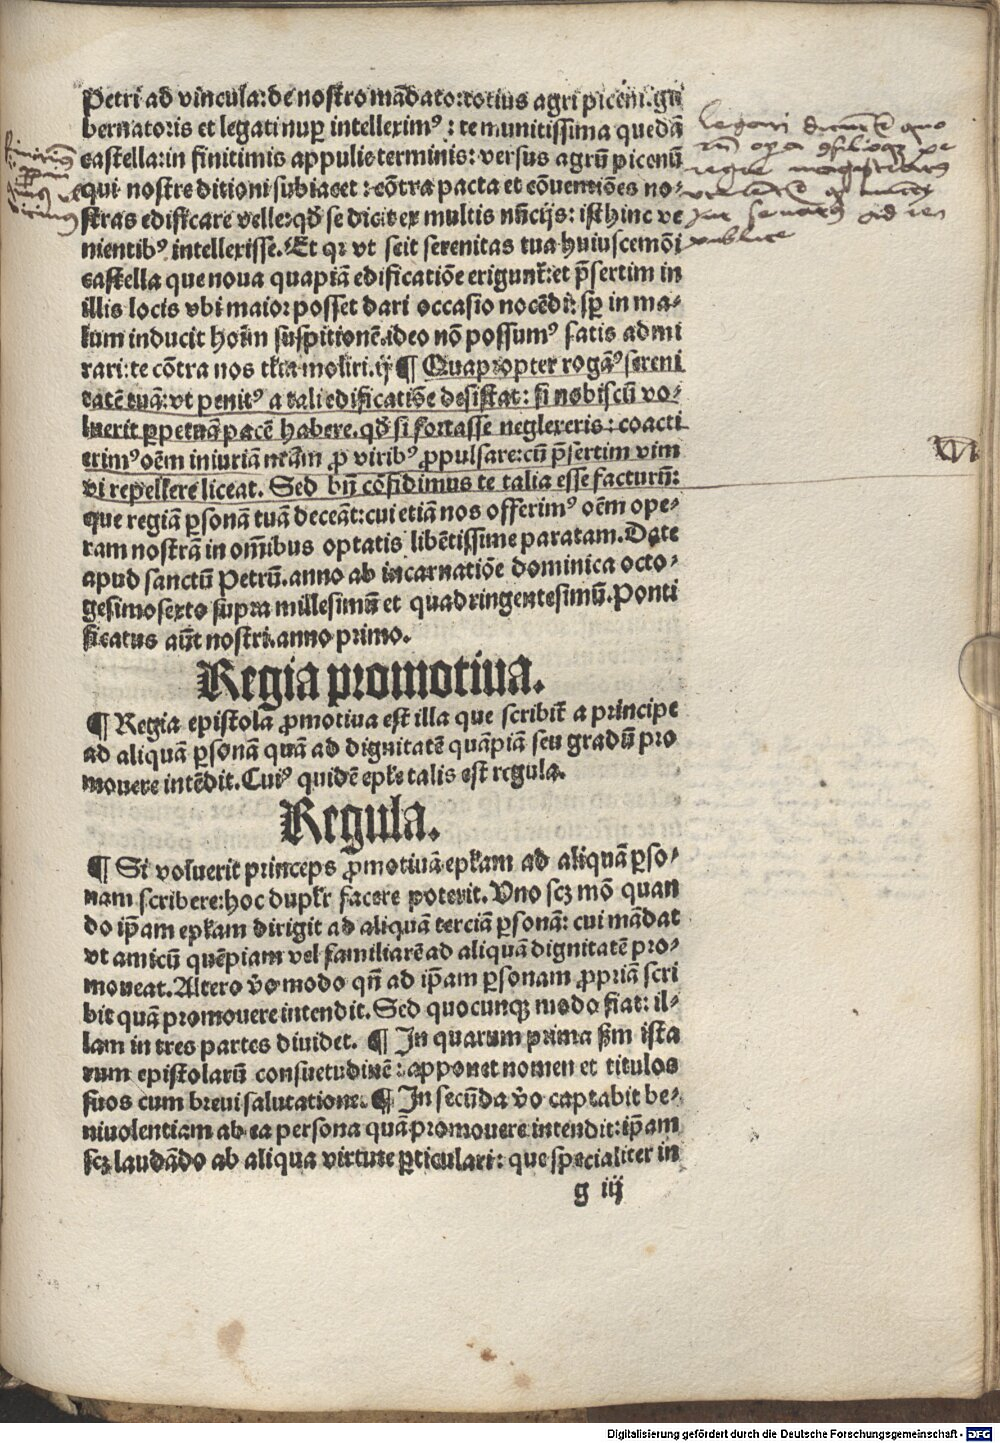 Petri ad vincula: de nostro mādato: totius agri piceni. gu
bernatoris et legati nuꝑ intelleximꝰ: te munitissima quedā
castella: in finitimis appulie terminis: versus agrū picenū
qui nostre ditioni subiacet: cōtra pacta et cōuentiōes no⸗
stras edificare velle: qd̄ se dicit ex multis nūcijs: isthinc ve
nientibꝰ intellexisse. Et qꝛ vt scit serenitas tua huiuscemōi
castella que noua quapiā edificatiōe erigunt̄: et p̄sertim in
illis locis vbi maior posset dari occasio nocēdi: sꝑ in ma⸗
lum inducit hoīm suspitionē. ideo nō possumꝰ satis admi
rari: te cōtra nos talia moliri. ¶ Quapropter rogaꝰ sereni
tatē tuā: vt penitꝰ a tali edificatiōe desistat: si nobiscū vo⸗
luerit ꝑpetuā pacē habere. qd̄ si fortasse neglexeris: coacti
erimꝰ oēm iniuriā nr̄am ꝓ viribꝰ ꝓpulsare: cū p̄sertim vim
vi repellere liceat. Sed bn̄ cōfidimus te talia esse facturū:
que regiā ꝑsonā tuā deceāt: cui etiā nos offerimꝰ oēm ope⸗
ram nostrā in om̄ibus optatis libētissime paratam. Date
apud sanctū Petrū. anno ab incarnatiōe dominica octo⸗
gesimosexto supra millesimū et quadringentesimū. Ponti
ficatus aūt nostri. anno primo.
Regia promotiua.
¶ Regia epistola ꝓmotiua est illa que scribit̄ a principe
ad aliquā ꝑsonā quā ad dignitatē quāpiā seu gradū pro
mouere intēdit. Cuiꝰ quidē epłe talis est regula.
Regula.
¶ Si voluerit princeps ꝓmotiuā epłam ad aliquā ꝑso⸗
nam scribere: hoc duplr̄ facere poterit. Vno scꝫ mō quan
do ip̄am epłam dirigit ad aliquā terciā ꝑsonā: cui mādat
vt amicū quēpiam vel familiarē ad aliquā dignitatē pro⸗
moueat. Altero v̄o modo qn̄ ad ip̄am ꝑsonam ꝓpriā scri
bit quā promouere intendit. Sed quocunqꝫ modo fiat: il⸗
lam in tres partes diuidet. ¶ In quarum prima ẜm ista
rum epistolarū consuetudinē: apponet nomen et titulos
suos cum breui salutatione. ¶ In secūda v̄o captabit be⸗
niuolentiam ab ea persona quā promouere intendit: ip̄am
scꝫ laudādo ab aliqua virtute ꝑticulari: que specialiter in
g iij
Digitalisierung gefördert durch die Deutsche Forschungsgemeinschaft - DFG